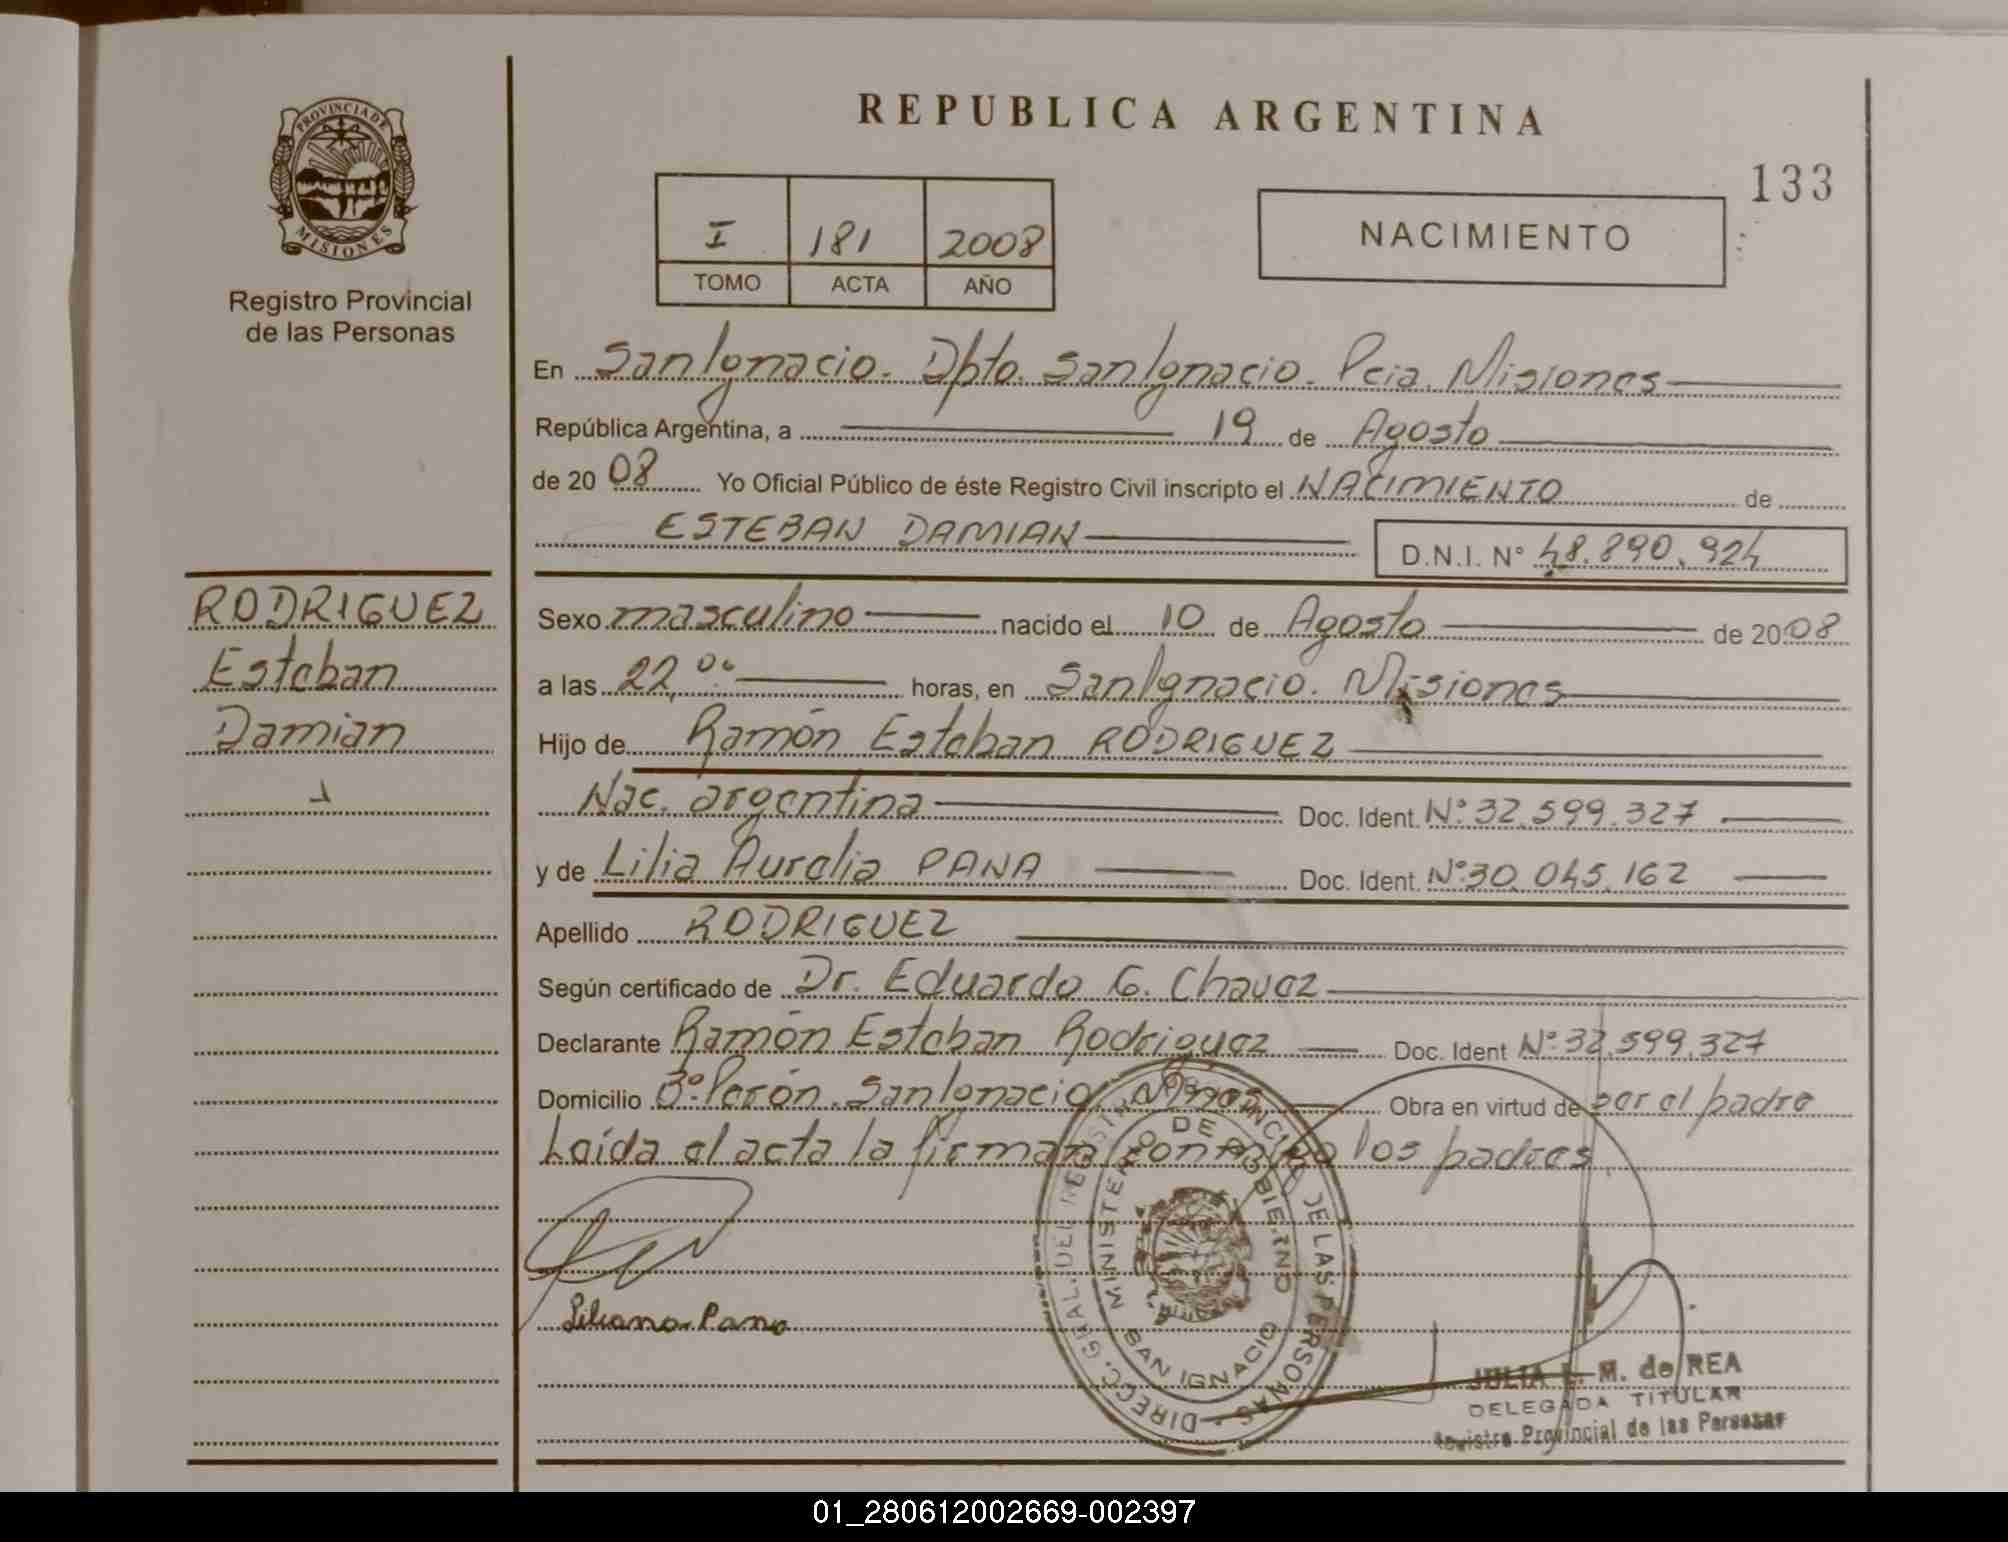 PROVINCIA DE
MISIONES
Registro Provincial
de las Personas
RODRIGUEZ
Esteban
Damian
REPUBLICA ARGENTINA
133
I 181 2008
TOMO ACTA AÑO
NACIMIENTO
En SanIgnacio. Dpto. SanIgnacio. Pcia. Misiones
República Argentina, a 19 de Agosto
de 2008 Yo Oficial Público de éste Registro Civil inscripto el NACIMIENTO de
ESTEBAN DAMIAN D.N.I. N° 48.890.924
Sexo masculino nacido el 10 de Agosto de 2008
a las 22,00 horas, en SanIgnacio. Misiones
Hijo de Ramón Esteban RODRIGUEZ
Nac. argentina Doc. Ident. N°:32.599.327
y de Lilia Aurelia PANA Doc. Ident. N°:30.045.162
Apellido RODRIGUEZ
Según certificado de Dr. Eduardo G. Chavez
Declarante Ramón Esteban Rodriguez Doc. Ident N°:32.599.327
Domicilio B°.Perón. SanIgnacio. Mnes. Obra en virtud de ser el padre
Leída el acta la firman conmigo los padres
Liliana Pana
DIRECC. GRAL. DEL REGISTRO PROVINCIAL DE LAS PERSONAS
MINISTERIO DE GOBIERNO
SAN IGNACIO
JULIA L. M. de REA
DELEGADA TITULAR
Registro Provincial de las Personas
01_280612002669-002397